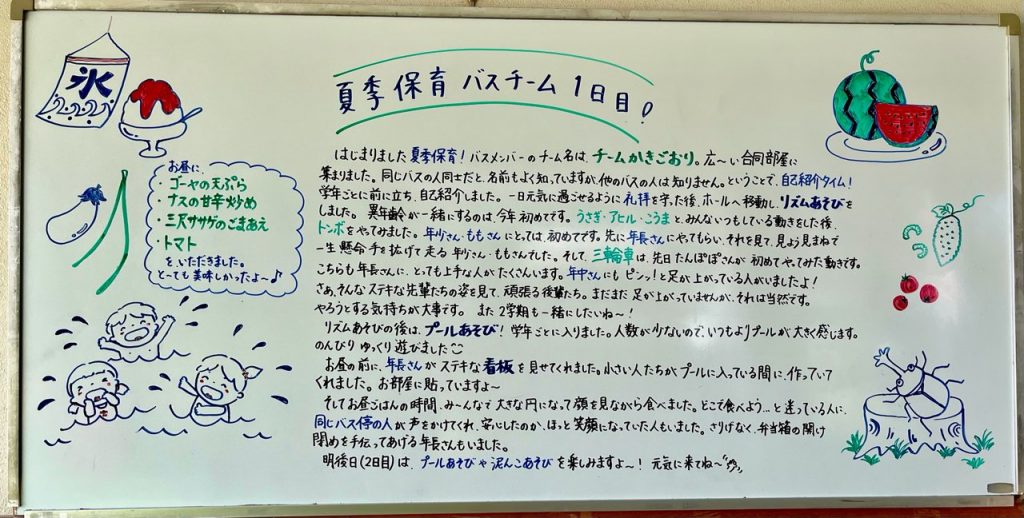 氷
夏季保育 バスチーム 1日目!
お昼に、
・ゴーヤの天ぷら
・ナスの甘辛炒め
・三尺ササゲのごまあえ
・トマト
をいただきました。
とーっても美味しかったよ〜♪
はじまりました夏季保育！バスメンバーのチーム名は、チームかきごおり。広〜い合同部屋に
集まりました。同じバスの人同士だと、名前もよく知っていますが、他のバスの人は知りません。ということで、自己紹介タイム！
学年ごとに前に立ち、自己紹介しました。一日元気に過ごせるように礼拝を守った後、ホールへ移動し、リズムあそびを
しました。異年齢が一緒にするのは、今年初めてです。うさぎ・アヒル・こうまと、みんないつもしている動きをした後、
トンボをやってみました。年少さん・ももさんにとっては、初めてです。先に年長さんにやってもらい、それを見て、見よう見まねで
一生懸命手を拡げて走る年少さん・ももさんでした。そして、三輪車は、先日たんぽぽさんが初めてやってみた動きです。
こちらも年長さんに、とっても上手な人がたくさんいます。年中さんにもピンッ！と足が上がっている人がいましたよ！
さぁ、そんなステキな先輩たちの姿を見て、頑張る後輩たち。まだまだ足が上がっていませんが、それは当然です。
やろうとする気持ちが大事です。また2学期も一緒にしたいね〜！
リズムあそびの後は、プールあそび！学年ごとに入りました。人数が少ないので、いつもよりプールが大きく感じます。
のんびりゆっくり遊びました
お昼の前に、年長さんがステキな看板を見せてくれました。小さい人たちが、プールに入っている間に、作っていて
くれました。お部屋に貼っていますよ〜
そしてお昼ごはんの時間、み〜んなで大きな円になって顔を見ながら食べました。どこで食べよう…と迷っている人に、
同じバス停の人が声をかけてくれ、安心したのか、ほっと笑顔になっていた人もいました。さりげなく、弁当箱の開け
閉めを手伝ってあげる年長さんもいました。
明後日(2日目)は、プールあそびや泥んこあそびを楽しみますよ〜！元気に来てね〜